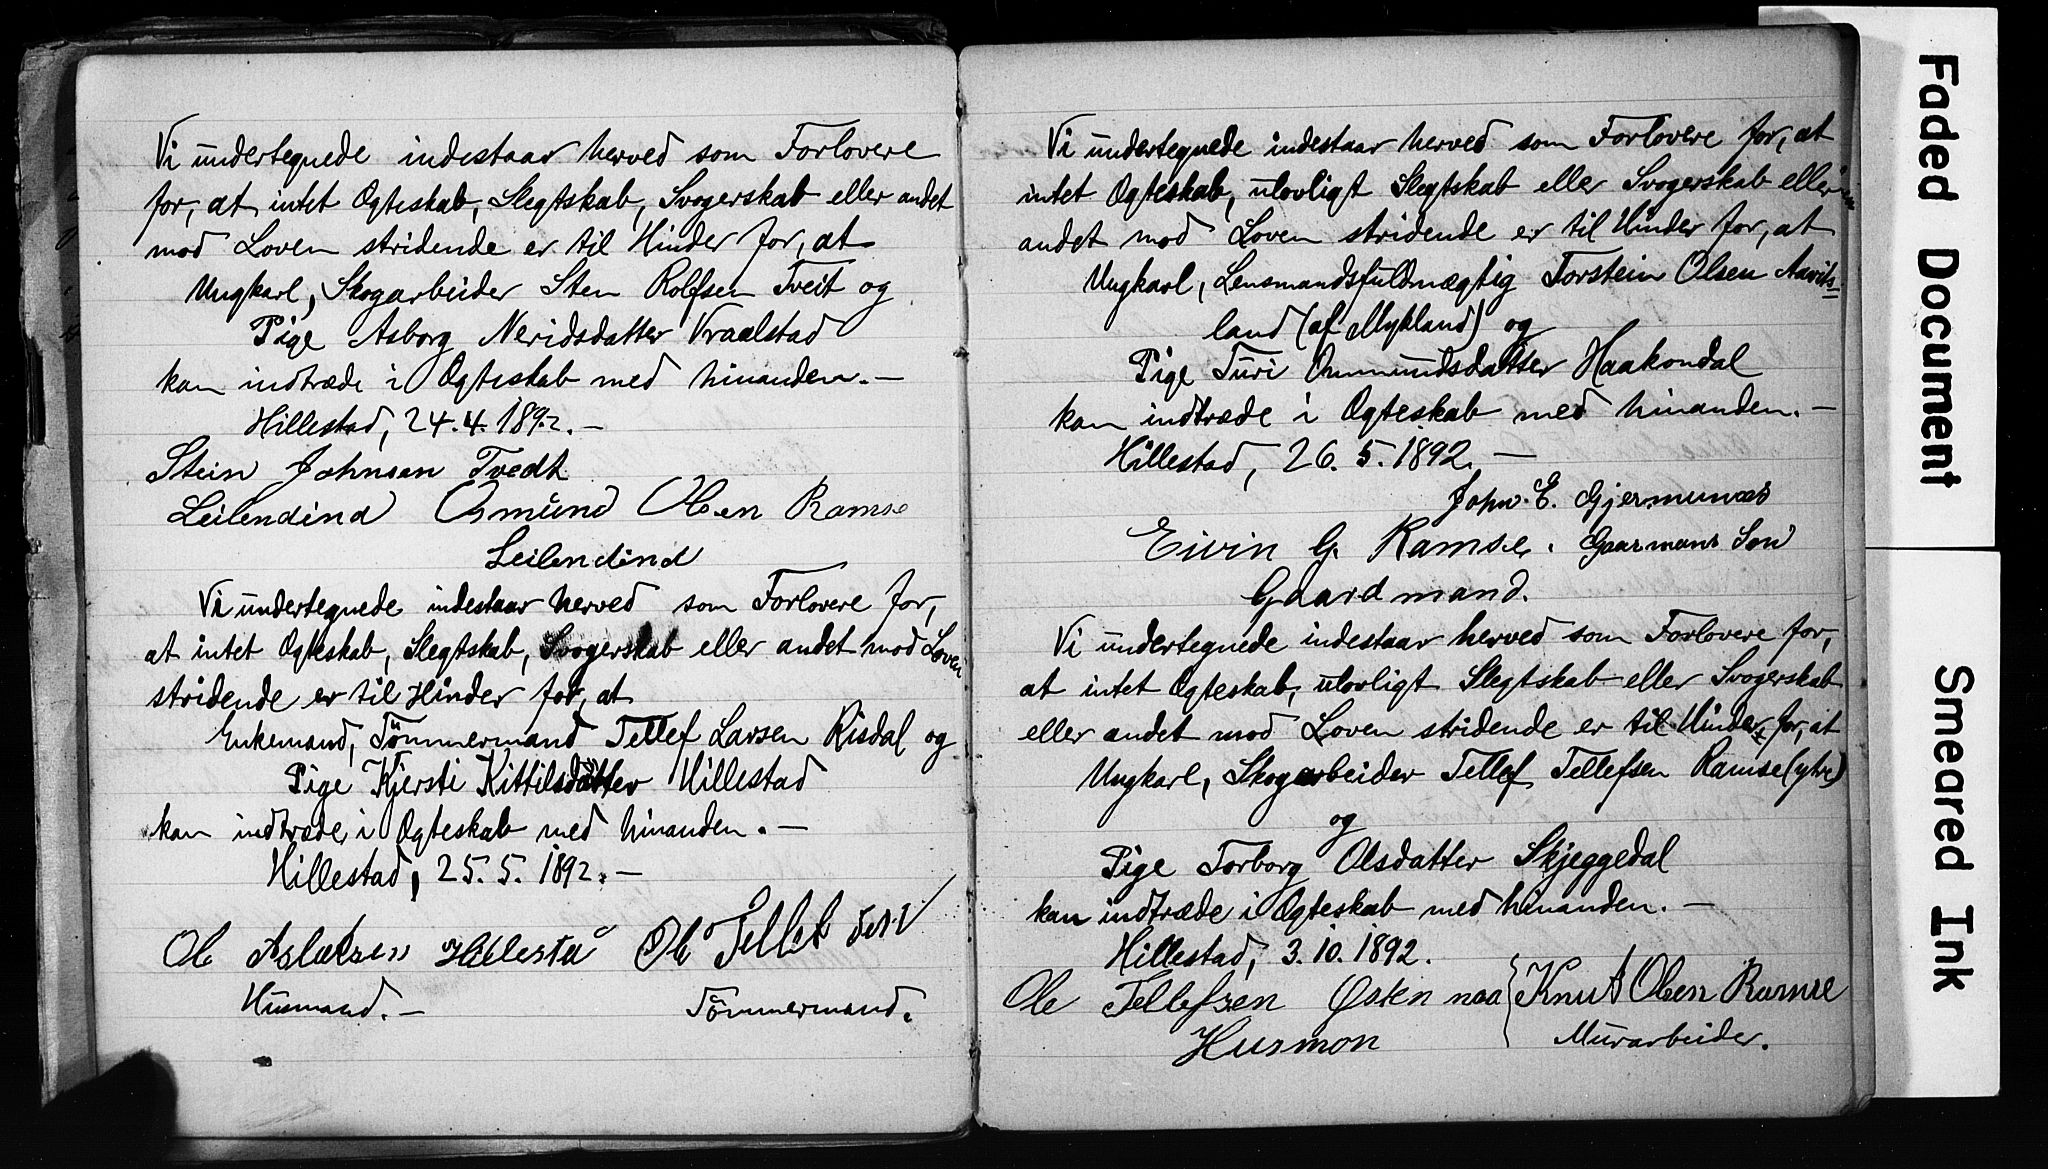 Vi undertegnede indestaar herved som Forlovere
for, at intet Ægteskab, Slegtskab, Svogerskab eller andet
mod Loven stridende er til Hinder for, at
Ungkarl, Skogarbeider Sten Rolfsen Tveit og
Pige Asborg Neridsdatter Vraalstad
kan indtræde i Ægteskab med hinanden. —
Hillestad, 24.4.1892. —
Stein Johnsen Tvedt
Leilendind Osmund Olsen Ramse
Leilendind
Vi undertegnede indestaar herved som Forlovere for,
at intet Ægteskab, Slegtskab, Svogerskab eller andet mod Loven
stridende er til Hinder for, at
Enkemand, Tömmermand Tellef Larsen Risdal og
Pige Kjersti Kittilsdatter Hillestad
kan indtræde i Ægteskab med hinanden. —
Hillestad, 25.5.1892. —
Ole Aslaksen Hillestad Ole Tellefsen
Husmand. — Tömmermand.
Vi undertegnede indestaar herved som Forlovere for, at
intet Ægteskab, ulovligt Slegtskab eller Svogerskab eller
andet mod Loven stridende er til Hinder for, at
Ungkarl, Lensmandsfuldmægtig Torstein Olsen Aavits-
land (af Mykland) og
Pige Turi Ommundsdatter Haakondal
kan indtræde i Ægteskab med hinanden. —
Hillestad, 26.5.1892. —
John E. Gjermunnæs
Eivin G. Ramse. Gaarmans Søn
Gaardmand.
Vi undertegnede indestaar herved som Forlovere for,
at intet Ægteskab, ulovligt Slegtskab eller Svogerskab
eller andet mod Loven stridende er til Hinder for, at
Ungkarl, Skogarbeider Tellef Tellefsen Ramse (ytre)
og
Pige Torborg Olsdatter Skjeggedal
kan indtræde i Ægteskab med hinanden. —
Hillestad, 3.10.1892.
Ole Tellefsen Knut Olsen Ramse
Husmon Murarbeider.
Faded Document
Smeared Ink